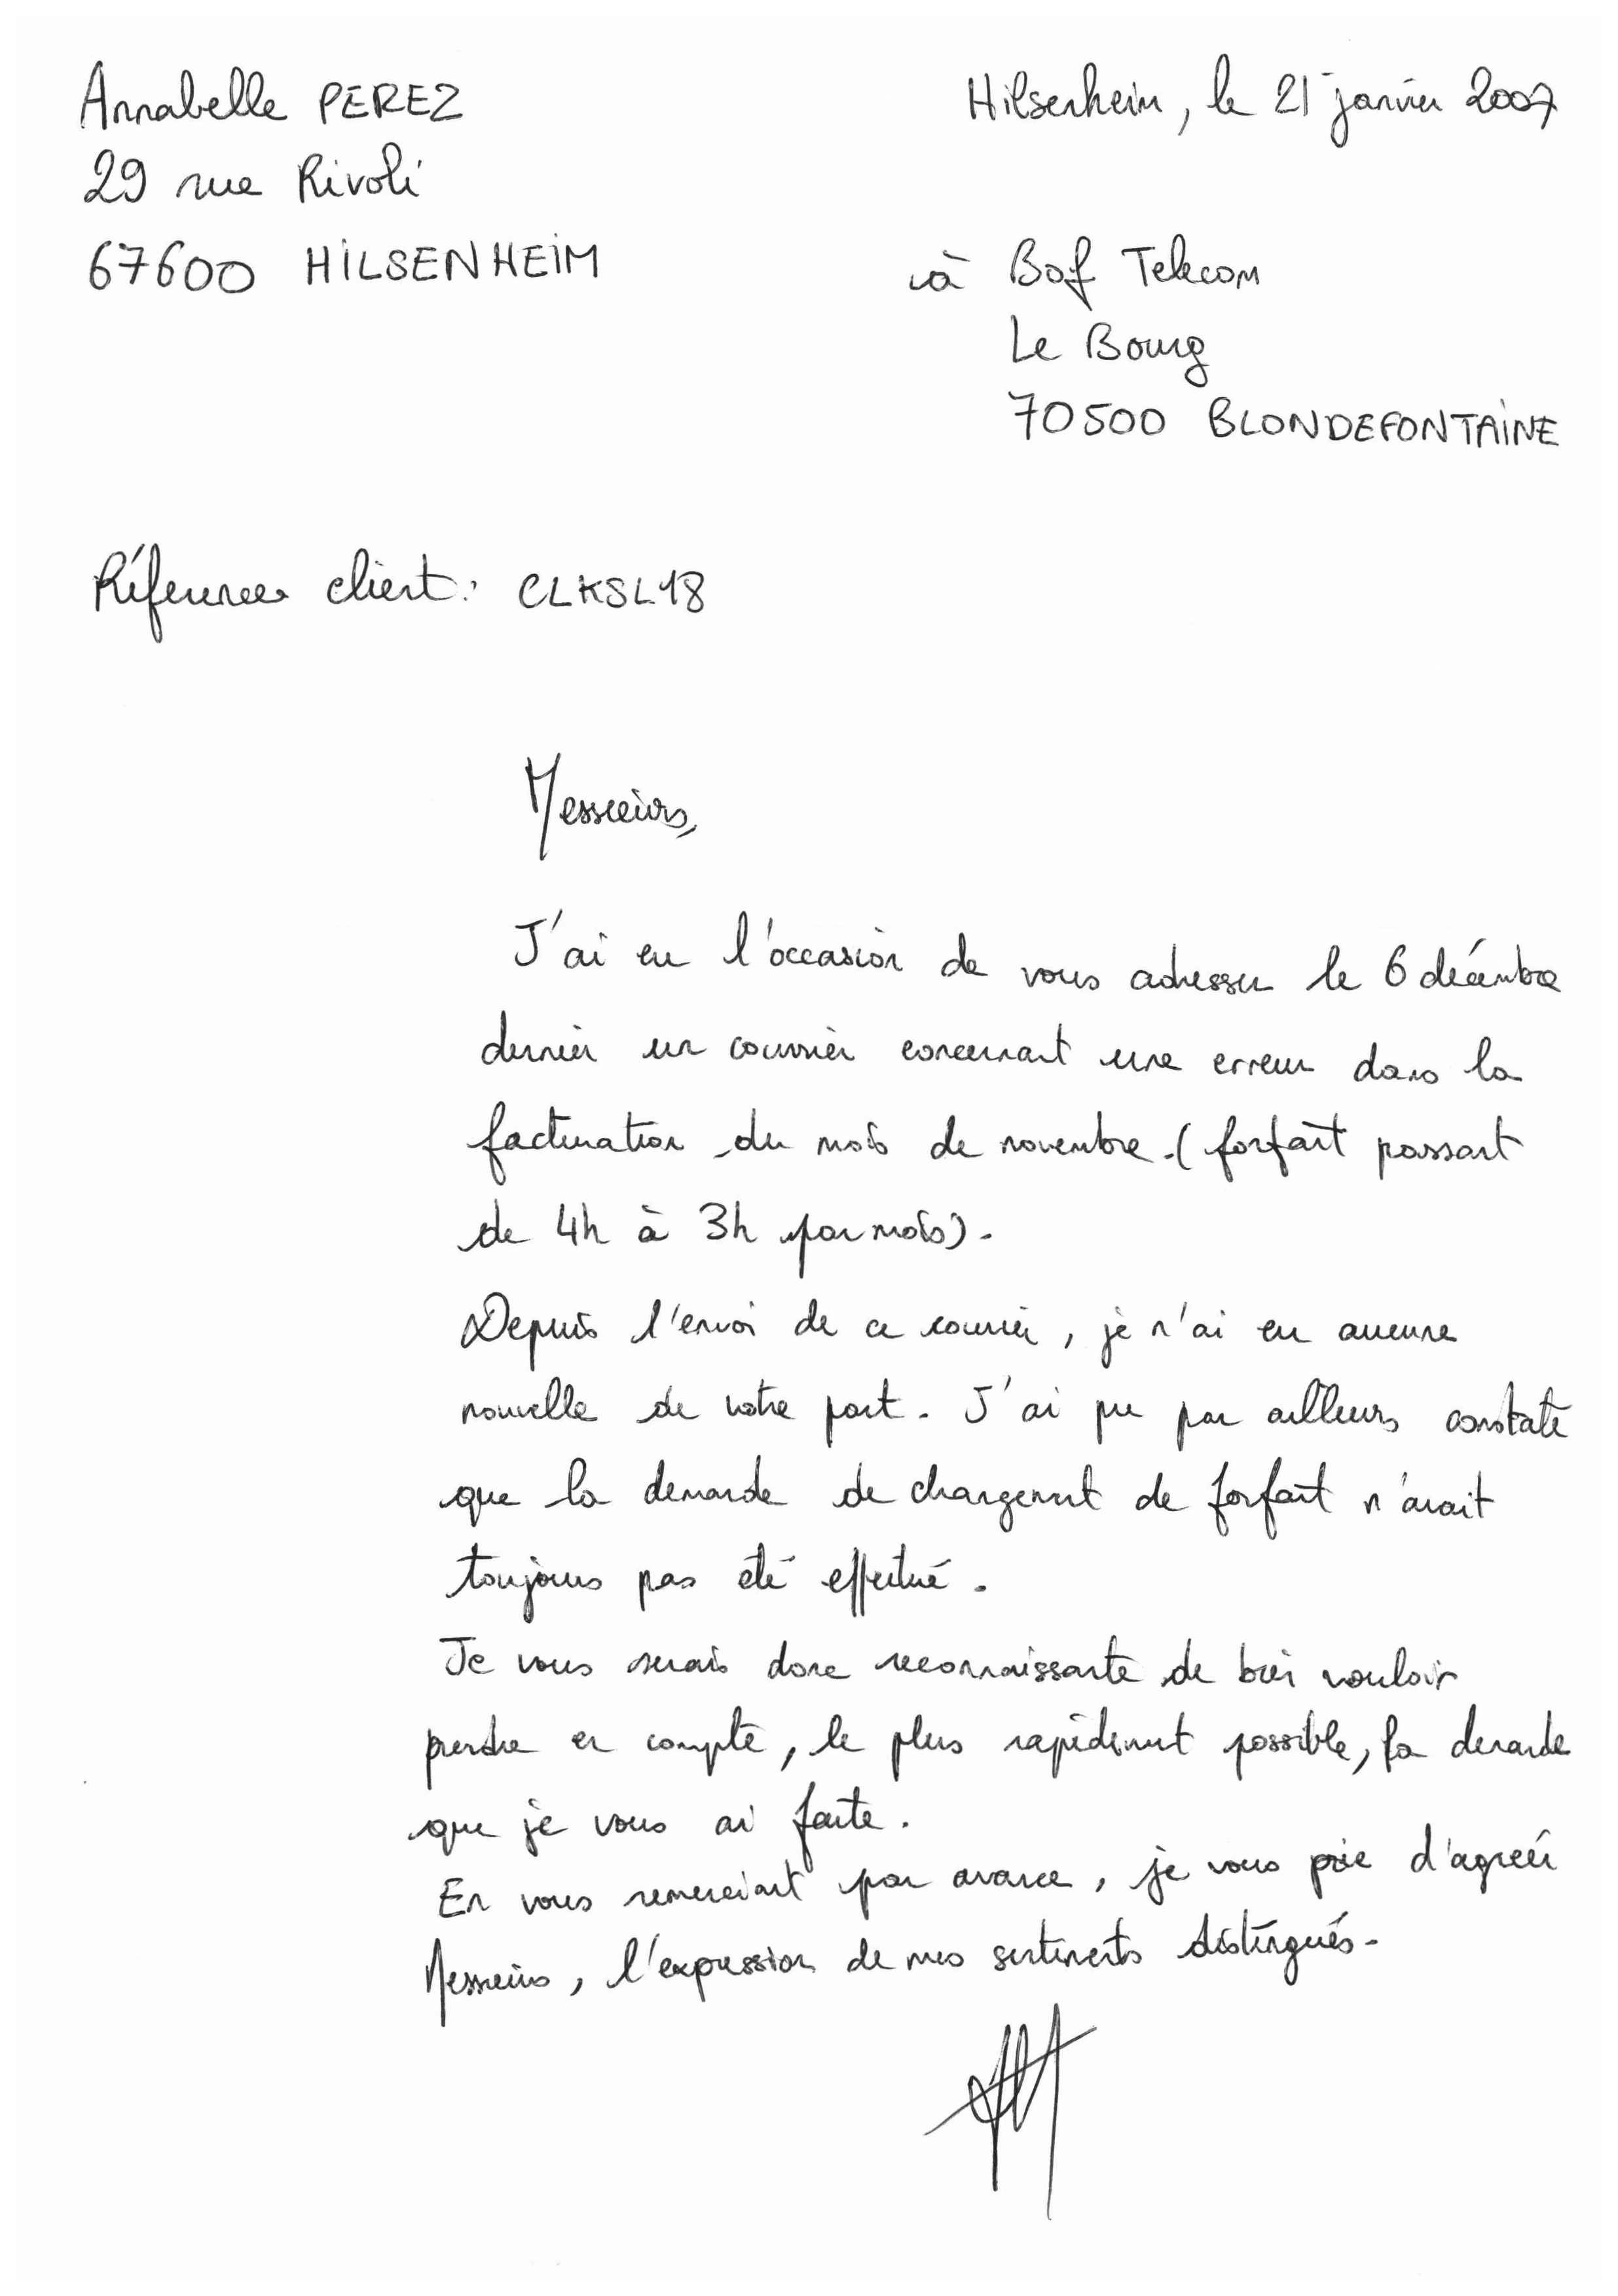 Annabelle PEREZ
29 rue Rivoli
67600 HILSENHEIM
Hilsenheim, le 21 janvier 2007
à Bof Telecom
Le Bourg
70500 BLONDEFONTAINE
Références client : CLKSL18
Messieurs,
J'ai eu l'occasion de vous adresser le 6 décembre
dernier un courrier concernant une erreur dans la
facturation du mois de novembre. (forfait passant
de 4h à 3h par mois).
Depuis l'envoi de ce courrier, je n'ai eu aucune
nouvelle de votre part. J'ai pu par ailleurs constaté
que la demande de changement de forfait n'avait
toujours pas été effectué.
Je vous serais donc reconnaissante de bien vouloir
prendre en compte, le plus rapidement possible, la demande
que je vous ai faite.
En vous remerciant par avance, je vous prie d'agréer
Messieurs, l'expression de mes sentiments distingués.